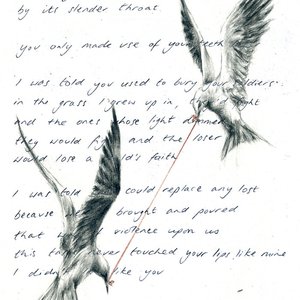 by its slender throat.
you only made use of your teeth
I was told you used to bury your soldiers
in the grass I grew up in,
and the ones whose light dimmed
they would and the loser
would lose a faith
I was told could replace any lost
because brought and poured
that violence upon us
this never touched your lips like mine
I like you